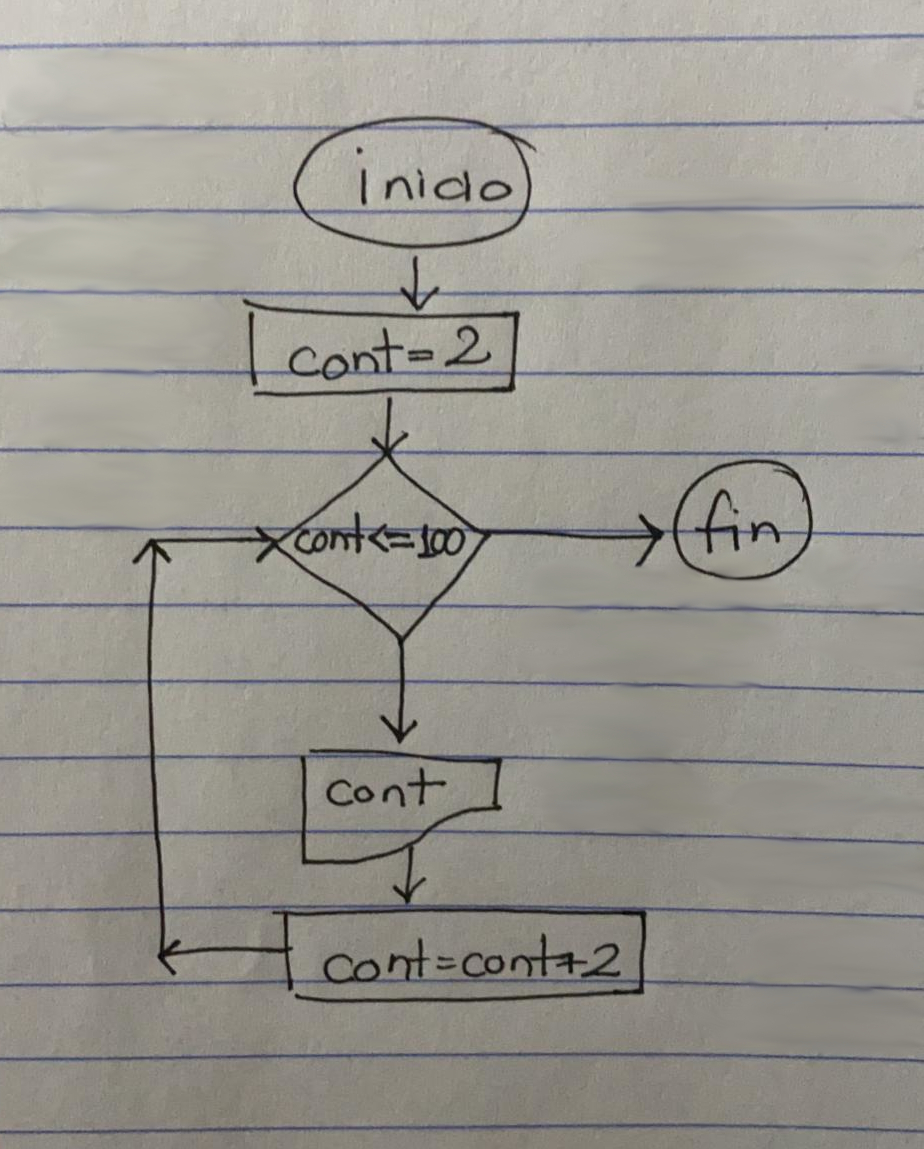 inicio
cont=2
cont<=100
fin
cont
cont=cont+2